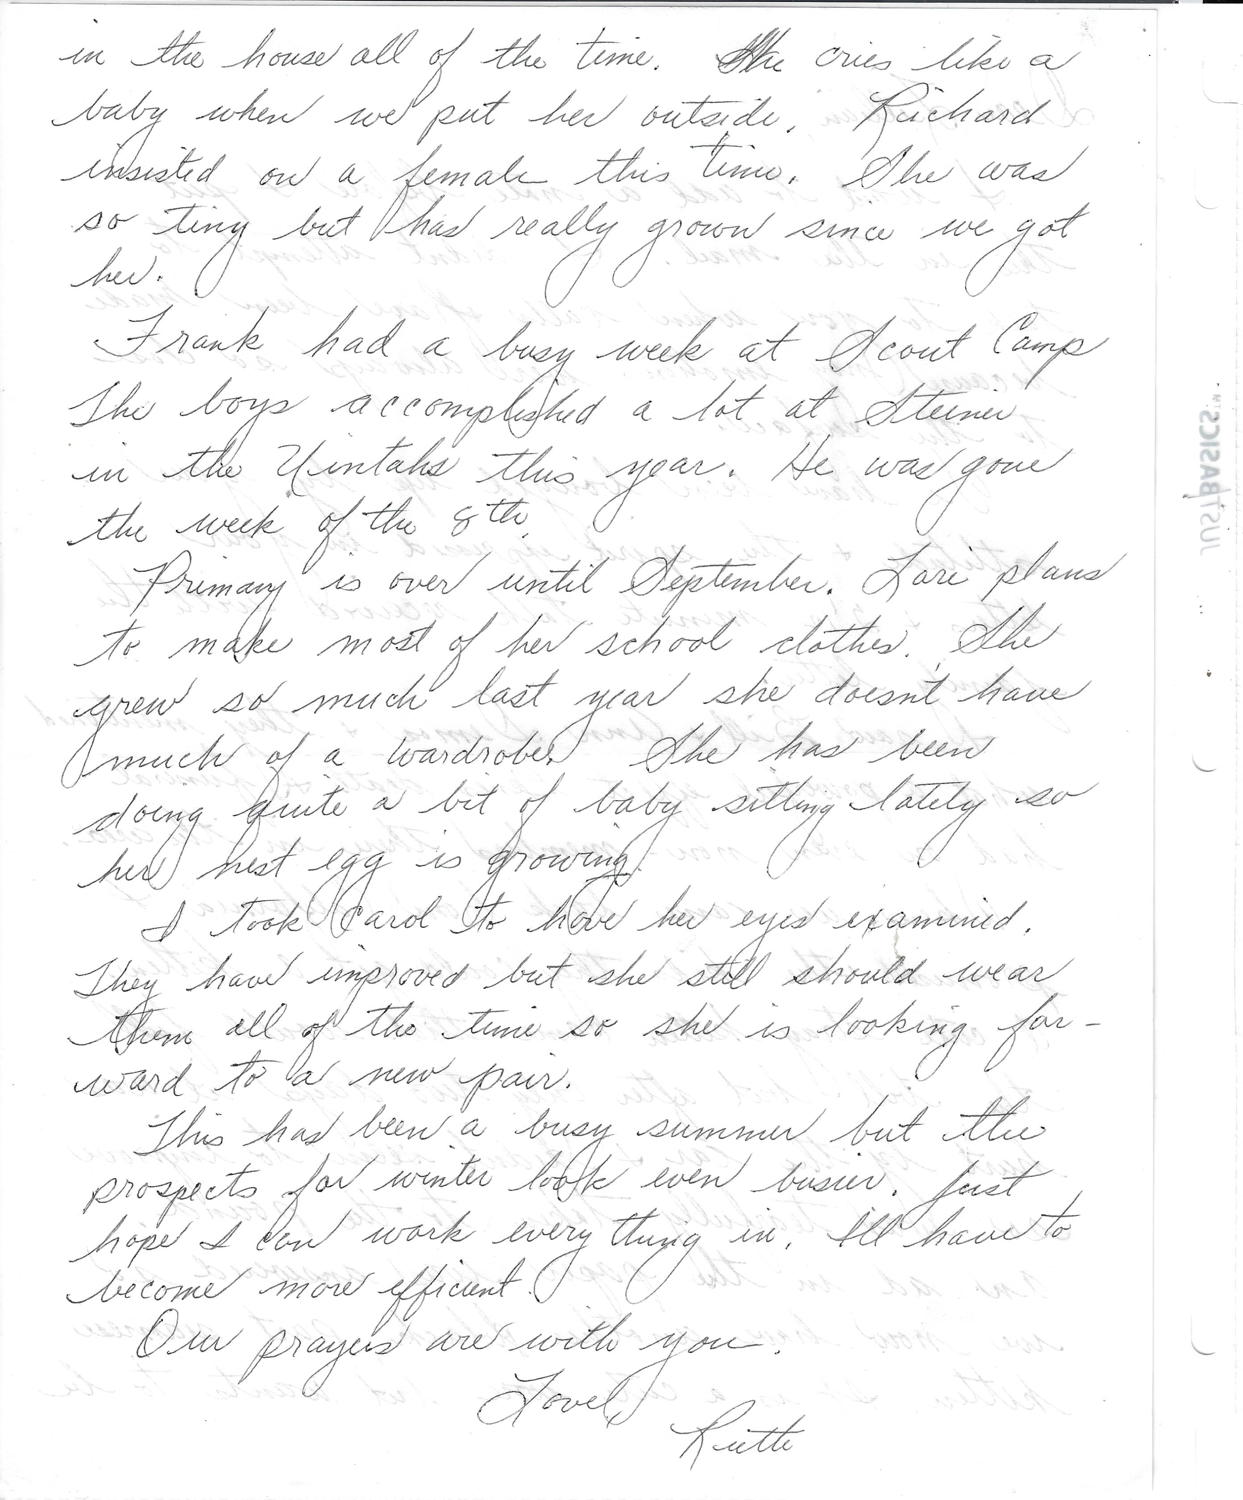 in the house all of the time. She cries like a
baby when we put her outside. Richard
insisted on a female this time. She was
so tiny but has really grown since we got
her.
Frank had a busy week at Scout Camp
The boys accomplished a lot at Steiner
in the Uintahs this year. He was gone
the week of the 8th.
Primary is over until September. Lori plans
to make most of her school clothes. She
grew so much last year she doesn't have
much of a wardrobe. She has been
doing quite a bit of baby sitting lately so
her nest egg is growing.
I took Carol to have her eyes examined.
They have improved but she still should wear
them all of the time so she is looking for-
ward to a new pair.
This has been a busy summer but the
prospects for winter look even busier. Just
hope I can work every thing in. I'll have to
become more efficient.
Our prayers are with you.
Love,
Ruth
JUSTBASICS™